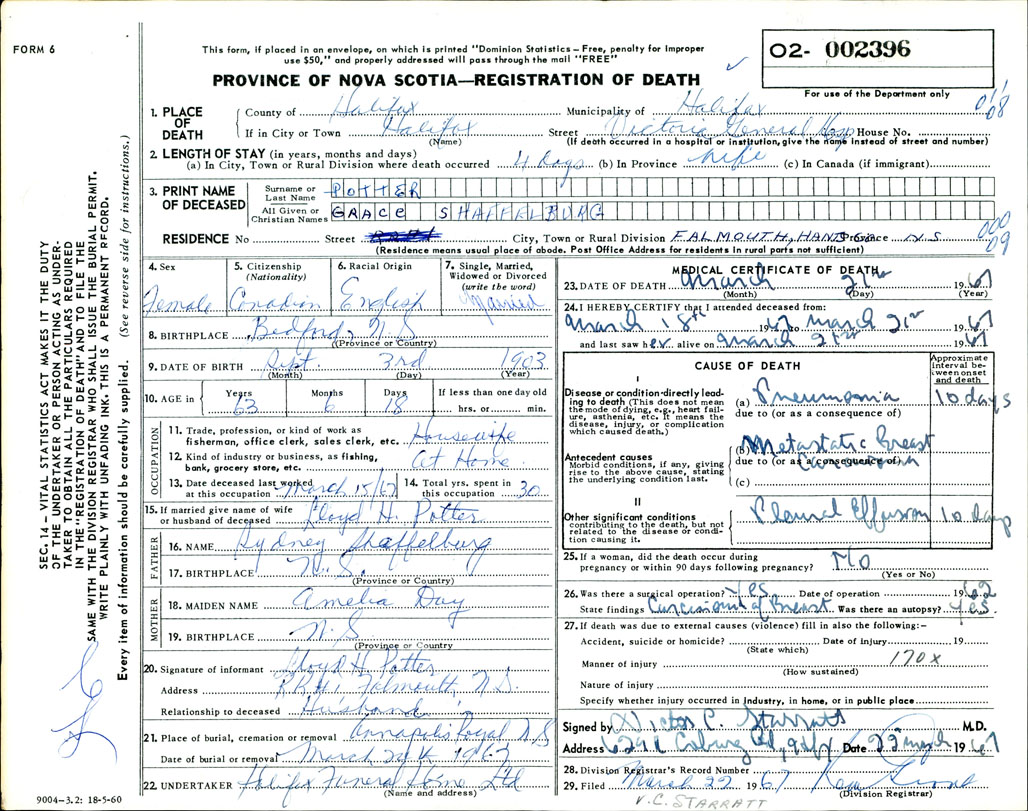 FORM 6
This form, if placed in an envelope, on which is printed "Dominion Statistics – Free, penalty for improper
use $50," and properly addressed will pass through the mail "FREE"
PROVINCE OF NOVA SCOTIA—REGISTRATION OF DEATH
02- 002396
For use of the Department only
1. PLACE OF DEATH
County of Halifax Municipality of Halifax
068
If in City or Town Halifax Street Victoria General Hosp House No.
(Name) (If death occurred in a hospital or institution, give the name instead of street and number)
2. LENGTH OF STAY (in years, months and days)
(a) In City, Town or Rural Division where death occurred 4 Days (b) In Province life (c) In Canada (if immigrant)
3. PRINT NAME OF DECEASED
Surname or Last Name POTTER
All Given or Christian Names GRACE SHAFFELBURG
RESIDENCE No Street City, Town or Rural Division FALMOUTH, HANTS Co Province N.S.
000
09
(Residence means usual place of abode. Post Office Address for residents in rural parts not sufficient)
4. Sex Female
5. Citizenship (Nationality) Canadian
6. Racial Origin English
7. Single, Married, Widowed or Divorced (write the word) Married
8. BIRTHPLACE Bedford, N.S
(Province or Country)
9. DATE OF BIRTH Sept. 3rd 1903
(Month) (Day) (Year)
10. AGE in Years 63 Months 6 Days 18 If less than one day old
hrs. or min.
OCCUPATION
11. Trade, profession, or kind of work as
fisherman, office clerk, sales clerk, etc. Housewife
12. Kind of industry or business, as fishing,
bank, grocery store, etc. at Home
13. Date deceased last worked
at this occupation March 15/67
14. Total yrs. spent in
this occupation 30
15. If married give name of wife
or husband of deceased Lloyd H. Potter
FATHER
16. NAME Sydney Shaffelburg
17. BIRTHPLACE N.S.
(Province or Country)
MOTHER
18. MAIDEN NAME Amelia Day
19. BIRTHPLACE N.S
(Province or Country
20. Signature of informant Lloyd H Potter
Address RR#1 Falmouth, N.S.
Relationship to deceased Husband
21. Place of burial, cremation or removal Annapolis Royal N.S
Date of burial or removal March 24th 1967
22. UNDERTAKER Halifax Funeral Home Ltd
(Name and address)
MEDICAL CERTIFICATE OF DEATH
23. DATE OF DEATH March 21st 1967
(Month) (Day) (Year)
24. I HEREBY CERTIFY that I attended deceased from:
March 18th 1967 to March 21st 1967
and last saw her alive on March 21st 1967
CAUSE OF DEATH
Approximate interval between onset and death
I
Disease or condition directly leading to death (This does not mean the mode of dying, e.g., heart failure, asthenia, etc. It means the disease, injury, or complication which caused death.)
(a) Pneumonia 10 days
due to (or as a consequence of)
Antecedent causes
Morbid conditions, if any, giving rise to the above cause, stating the underlying condition last.
(b) Metastatic Breast Carcinoma
due to (or as a consequence of)
(c)
II
Other significant conditions
contributing to the death, but not related to the disease or condition causing it.
Pleural Effusion 10 days
25. If a woman, did the death occur during
pregnancy or within 90 days following pregnancy? No
(Yes or No)
26. Was there a surgical operation? Yes Date of operation 1962
State findings Carcinoma of Breast Was there an autopsy? Yes.
27. If death was due to external causes (violence) fill in also the following:–
Accident, suicide or homicide? Date of injury 19
(State which)
Manner of injury 170x
(How sustained)
Nature of injury
Specify whether injury occurred in industry, in home, or in public place
Signed by Victor C. Starratt M.D.
Address Coburg Rd, Date 22 1967
28. Division Registrar's Record Number
29. Filed March 22 1967
(Division Registrar)
V.C. STARRATT
9004-3.2: 18-5-60
SEC. 14 – VITAL STATISTICS ACT MAKES IT THE DUTY
OF THE UNDERTAKER OR PERSON ACTING AS UNDER-
TAKER TO OBTAIN ALL THE PARTICULARS REQUIRED
IN THE "REGISTRATION OF DEATH" AND TO FILE THE
SAME WITH THE DIVISION REGISTRAR WHO SHALL ISSUE THE BURIAL PERMIT.
WRITE PLAINLY WITH UNFADING INK. THIS IS A PERMANENT RECORD.
Every item of information should be carefully supplied. (See reverse side for instructions.)